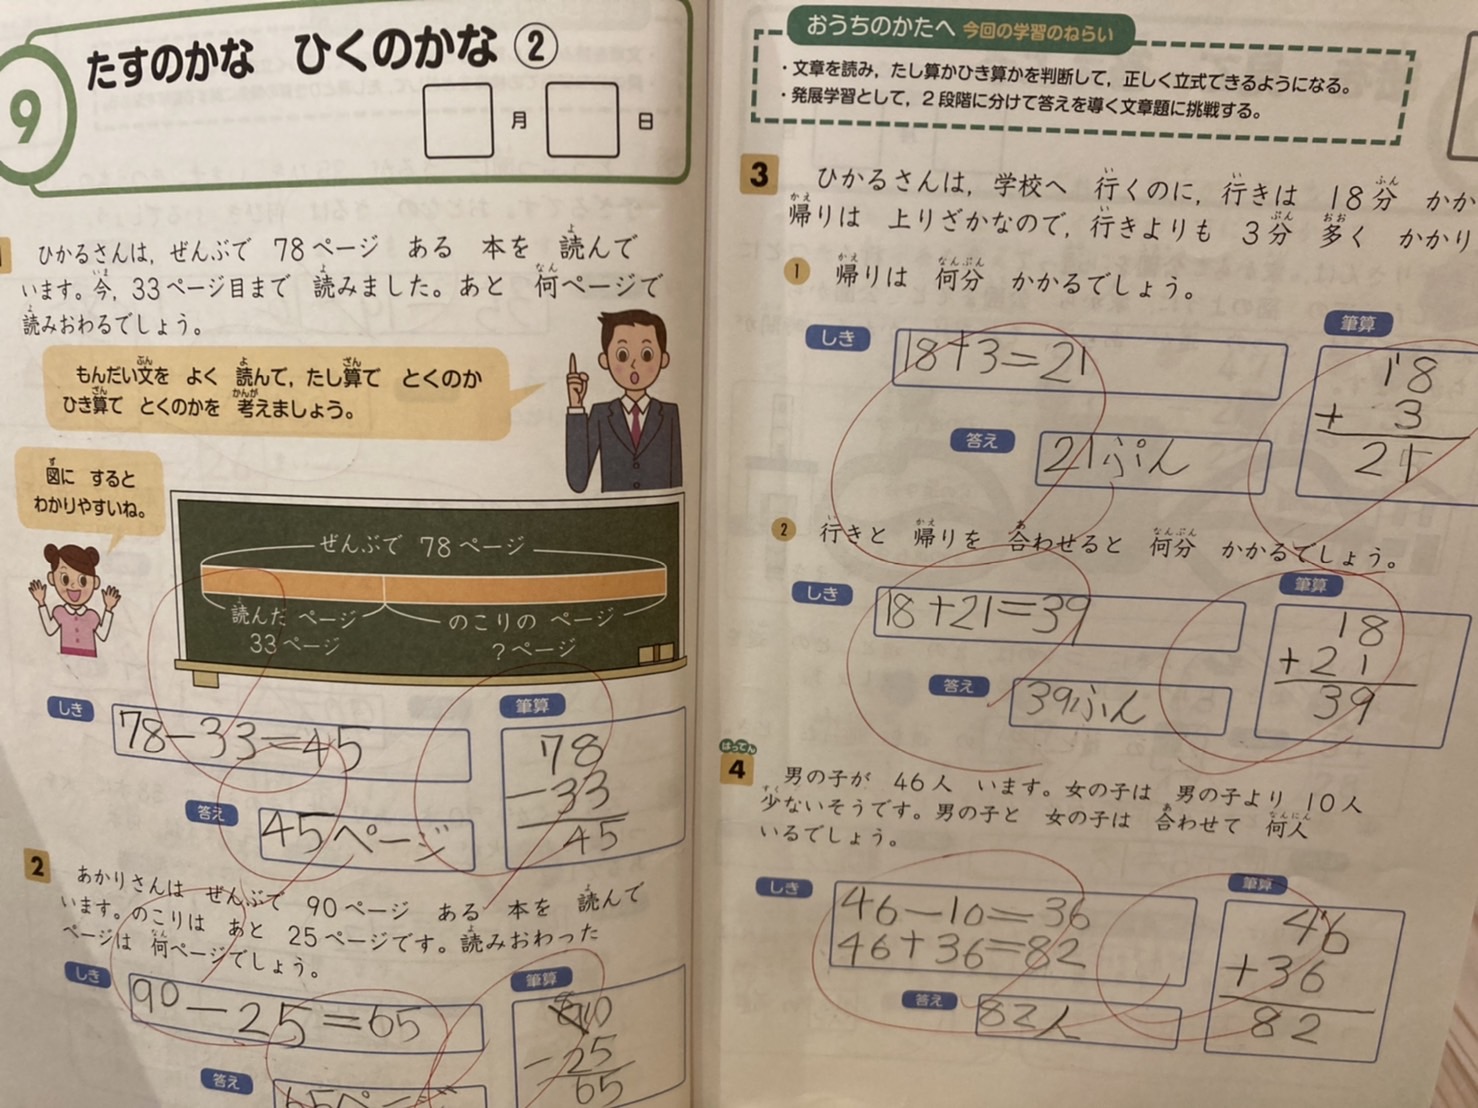 9
たすのかな ひくのかな ②
月 日
ひかるさんは，ぜんぶで 78ページ ある 本を 読んで
います。今，33ページ目まで 読みました。あと 何ページで
読みおわるでしょう。
もんだい文を よく 読んで，たし算で とくのか
ひき算で とくのかを 考えましょう。
図に すると
わかりやすいね。
ぜんぶで 78ページ
読んだ ページ
33ページ
のこりの ページ
?ページ
しき
78-33=45
筆算
78
-33
45
答え
45ページ
2
あかりさんは ぜんぶで 90ページ ある 本を 読んで
います。のこりは あと 25ページです。読みおわった
ページは 何ページでしょう。
しき
90-25=65
筆算
-25
65
答え
65ページ
おうちのかたへ 今回の学習のねらい
・文章を読み，たし算かひき算かを判断して，正しく立式できるようになる。
・発展学習として，2段階に分けて答えを導く文章題に挑戦する。
3
ひかるさんは，学校へ 行くのに，行きは 18分 かか
帰りは 上りざかなので，行きよりも 3分 多く かかり
1 帰りは 何分 かかるでしょう。
しき
18+3=21
筆算
18
+ 3
21
答え
21ぷん
2 行きと 帰りを 合わせると 何分 かかるでしょう。
しき
18+21=39
筆算
18
+21
39
答え
39ぷん
はってん
4
男の子が 46人 います。女の子は 男の子より 10人
少ないそうです。男の子と 女の子は 合わせて 何人
いるでしょう。
しき
46-10=36
46+36=82
筆算
46
+36
82
答え
82人